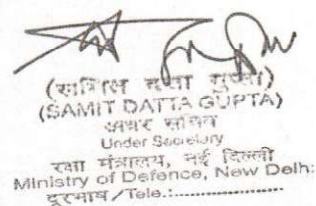 (समित दत्ता गुप्ता)
(SAMIT DATTA GUPTA)
अवर सचिव
Under Secretary
रक्षा मंत्रालय, नई दिल्ली
Ministry of Defence, New Delhi
दूरभाष/Tele.:....................